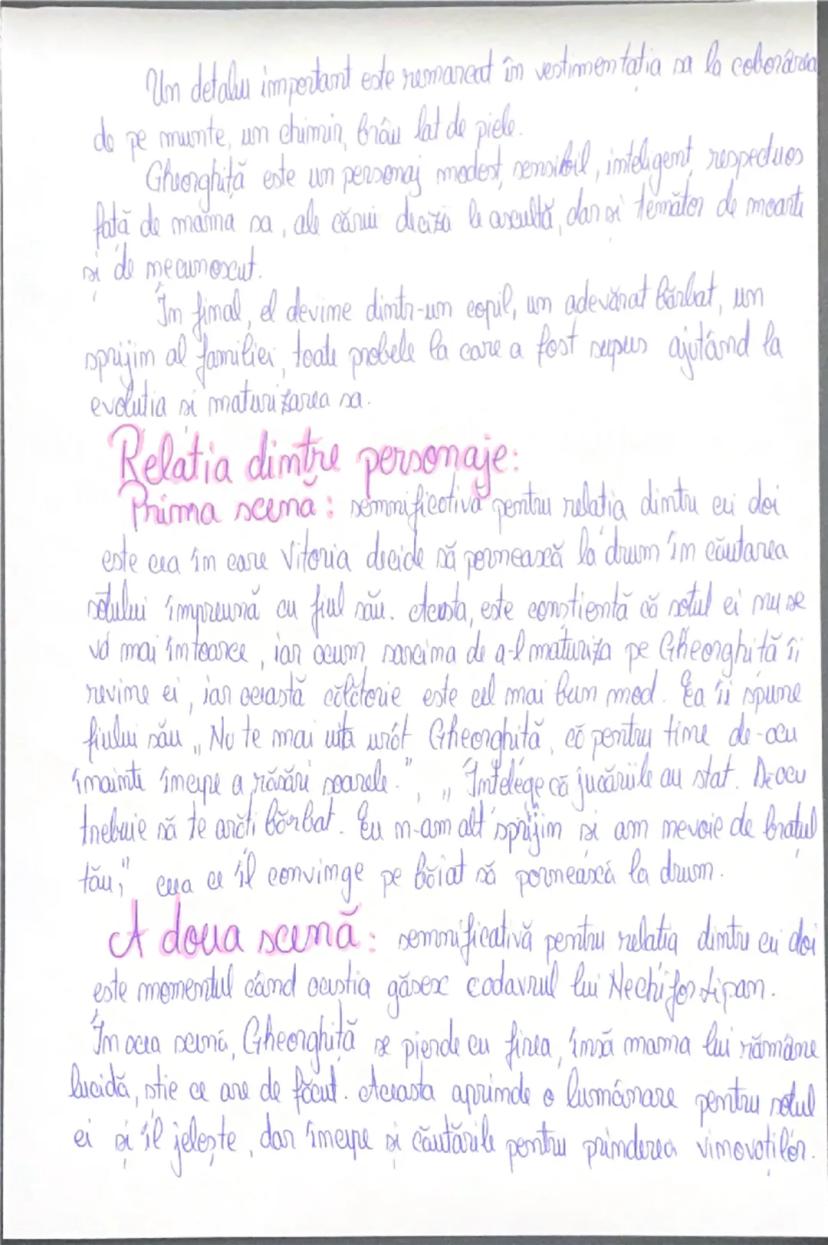 Un detaliu important este remarcat în vestimentatia sa la coborârea
de pe munte, un chimir, brâu lat de piele.
Gheorghiță este un personaj modest, sensibil, inteligent, respectuos
față de mama sa, ale cărui decizii le ascultă, dar si temător de moarte
si de necunoscut.
În final, el devine dintr-un copil, un adevărat bărbat, un
sprijin al familiei, toate probele la care a fost supus ajutând la
evolutia si maturizarea sa.
Relatia dintre personaje:
Prima scenă: semnificativă pentru relatia dintre cei doi
este cea în care Vitoria decide să pornească la drum în căutarea
sotului împreună cu fiul său. Acesta, este constientă că sotul ei nu se
va mai întoarce, iar acum sarcina de a-l maturiza pe Gheorghită îi
revine ei, iar această călătorie este cel mai bun mod. Ea îi spune
fiului său „Nu te mai uita urât Gheorghită, că pentru tine de-acu
înainte începe a răsări soarele.", „Întelege că jucăriile au stat. De acu
trebuie să te arăti bărbat. Eu n-am alt sprijin si am nevoie de bratul
tău," ceea ce îl convinge pe băiat să pornească la drum.
A doua scenă: semnificativă pentru relatia dintre cei doi
este momentul când acestia găsesc cadavrul lui Nechifor Lipan.
În acea scenă, Gheorghiță se pierde cu firea, însă mama lui rămâne
lucidă, stie ce are de făcut. Aceasta aprinde o lumânare pentru sotul
ei și îl jelește, dar începe si căutările pentru prinderea vinovatilor.